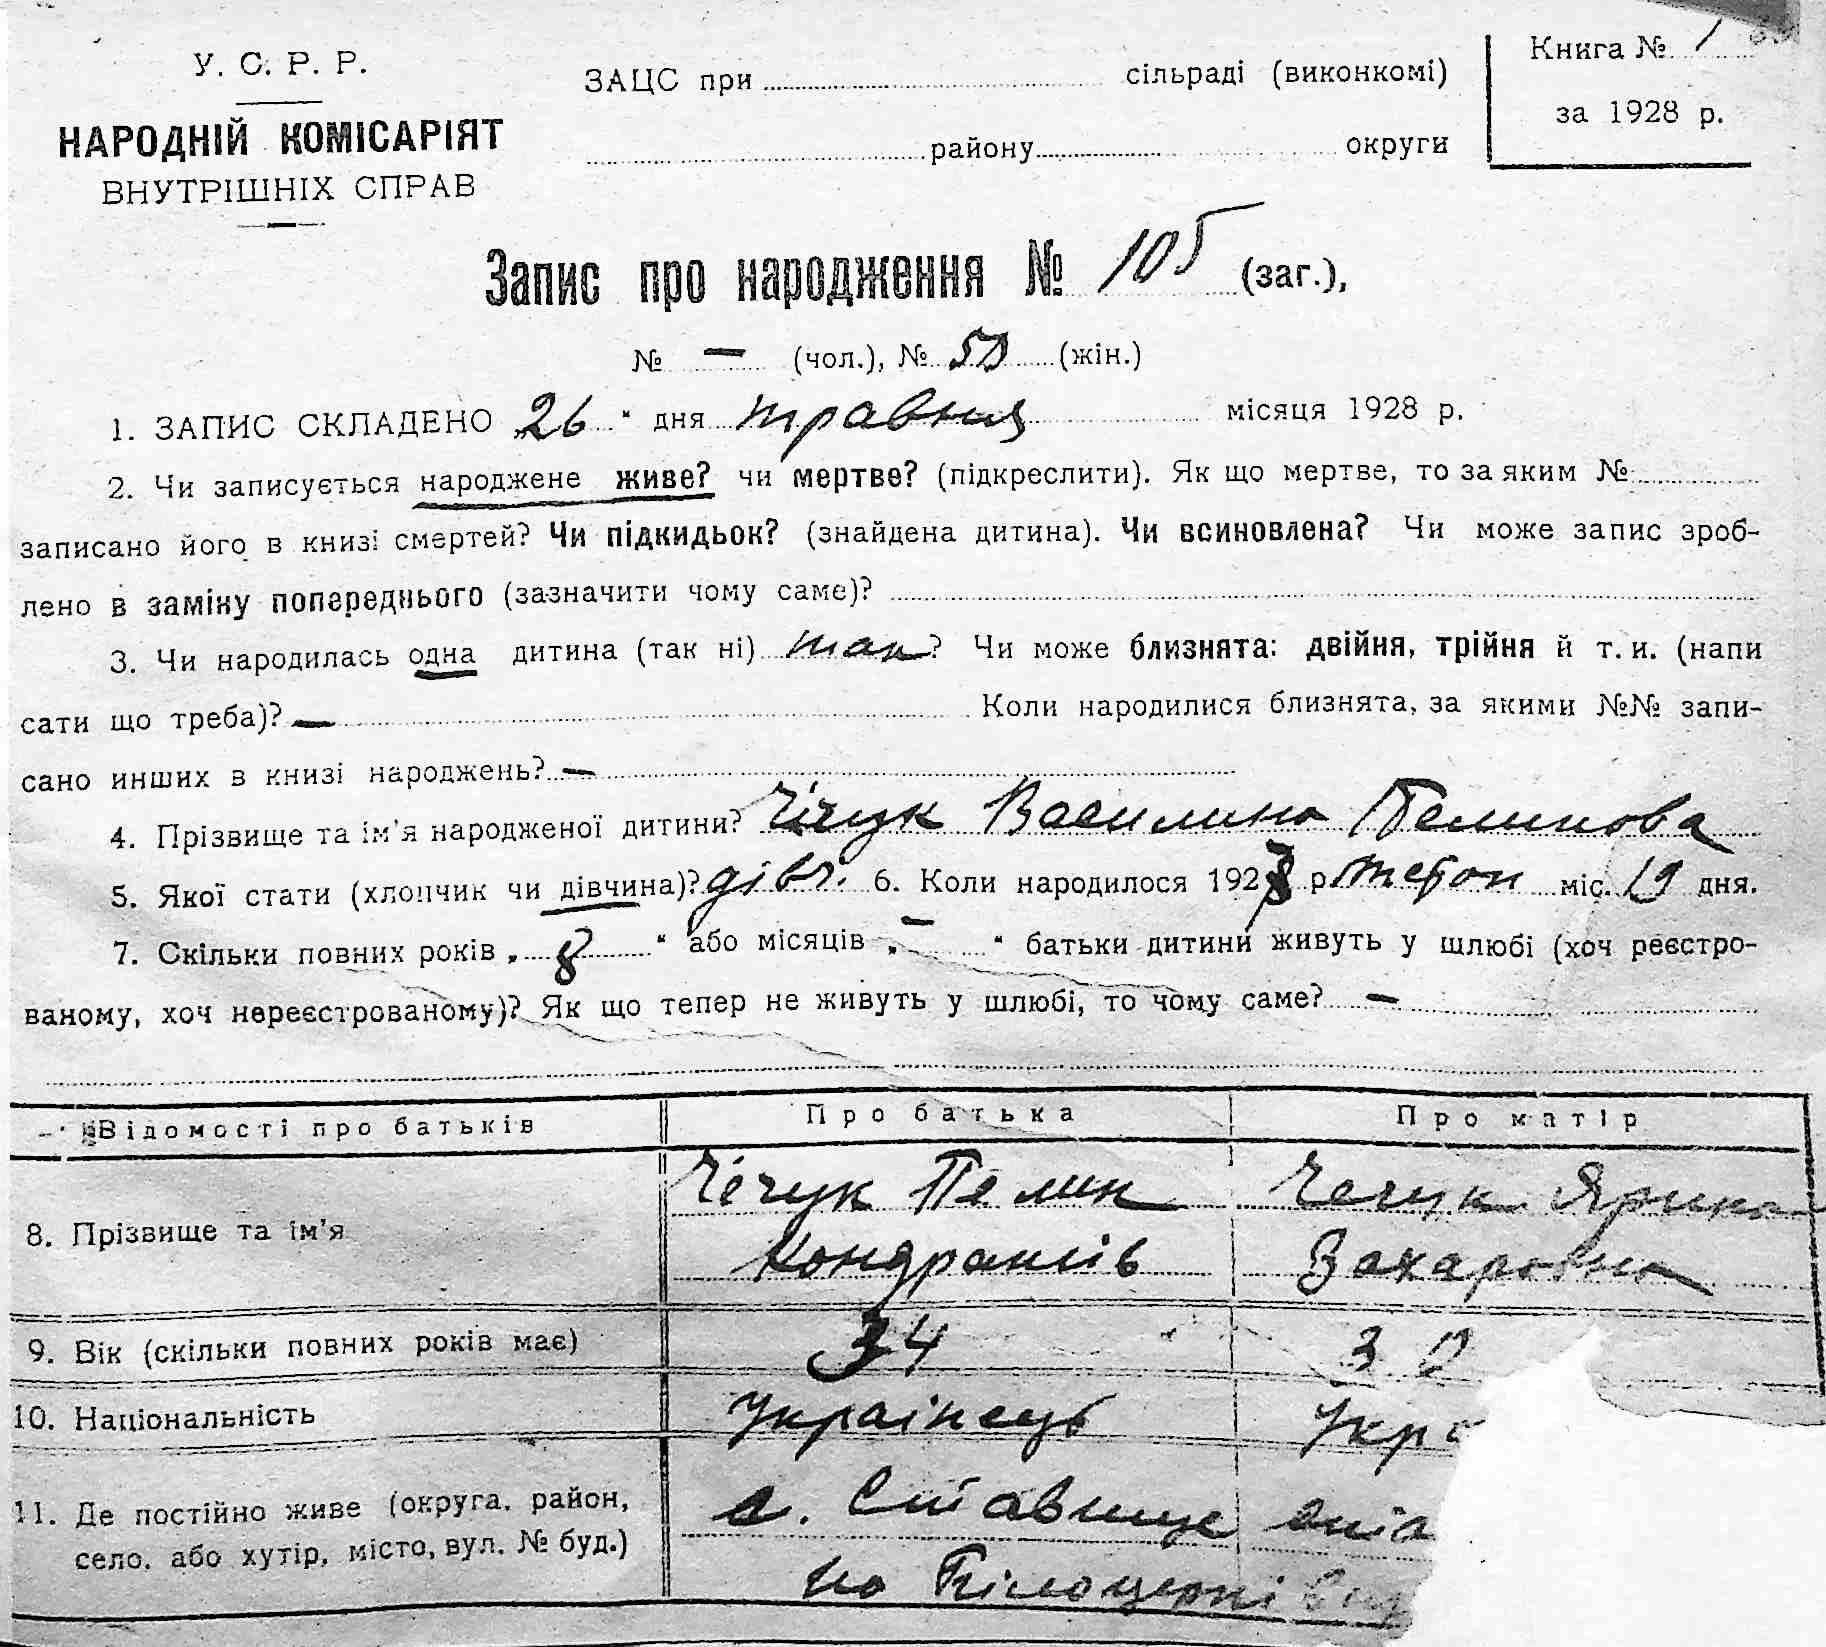 У. С. Р. Р.
НАРОДНІЙ КОМІСАРІЯТ
ВНУТРІШНІХ СПРАВ
ЗАЦС при сільраді (виконкомі)
району округи
Книга № 1
за 1928 р.
Запис про народження № 105 (заг.),
№ — (чол.), № (жін.)
1. ЗАПИС СКЛАДЕНО „26“ дня травня місяця 1928 р.
2. Чи записується народжене живе? чи мертве? (підкреслити). Як що мертве, то за яким №
записано його в книзі смертей? Чи підкидьок? (знайдена дитина). Чи всиновлена? Чи може запис зроб-
лено в заміну попереднього (зазначити чому саме)?
3. Чи народилась одна дитина (так ні) так? Чи може близнята: двійня, трійня й т. и. (напи
сати що треба)? — Коли народилися близнята, за якими №№ запи-
сано инших в книзі народжень? —
4. Прізвище та ім'я народженої дитини? Чічук Василина Пелипова
5. Якої стати (хлопчик чи дівчина)? дівч. 6. Коли народилося 1928 р. міс. 19 дня.
7. Скільки повних років „8“ або місяців „—“ батьки дитини живуть у шлюбі (хоч реєстро-
ваному, хоч нереєстрованому)? Як що тепер не живуть у шлюбі, то чому саме? —
Відомості про батьків Про батька Про матір
8. Прізвище та ім'я Чічук Пелип Чечук Ярина
Кондратів Захаровна
9. Вік (скільки повних років має) 34 30
10. Національність Українець Укра
11. Де постійно живе (округа, район, с. Ставище
село, або хутір, місто, вул. № буд.) на Білоцерківщ